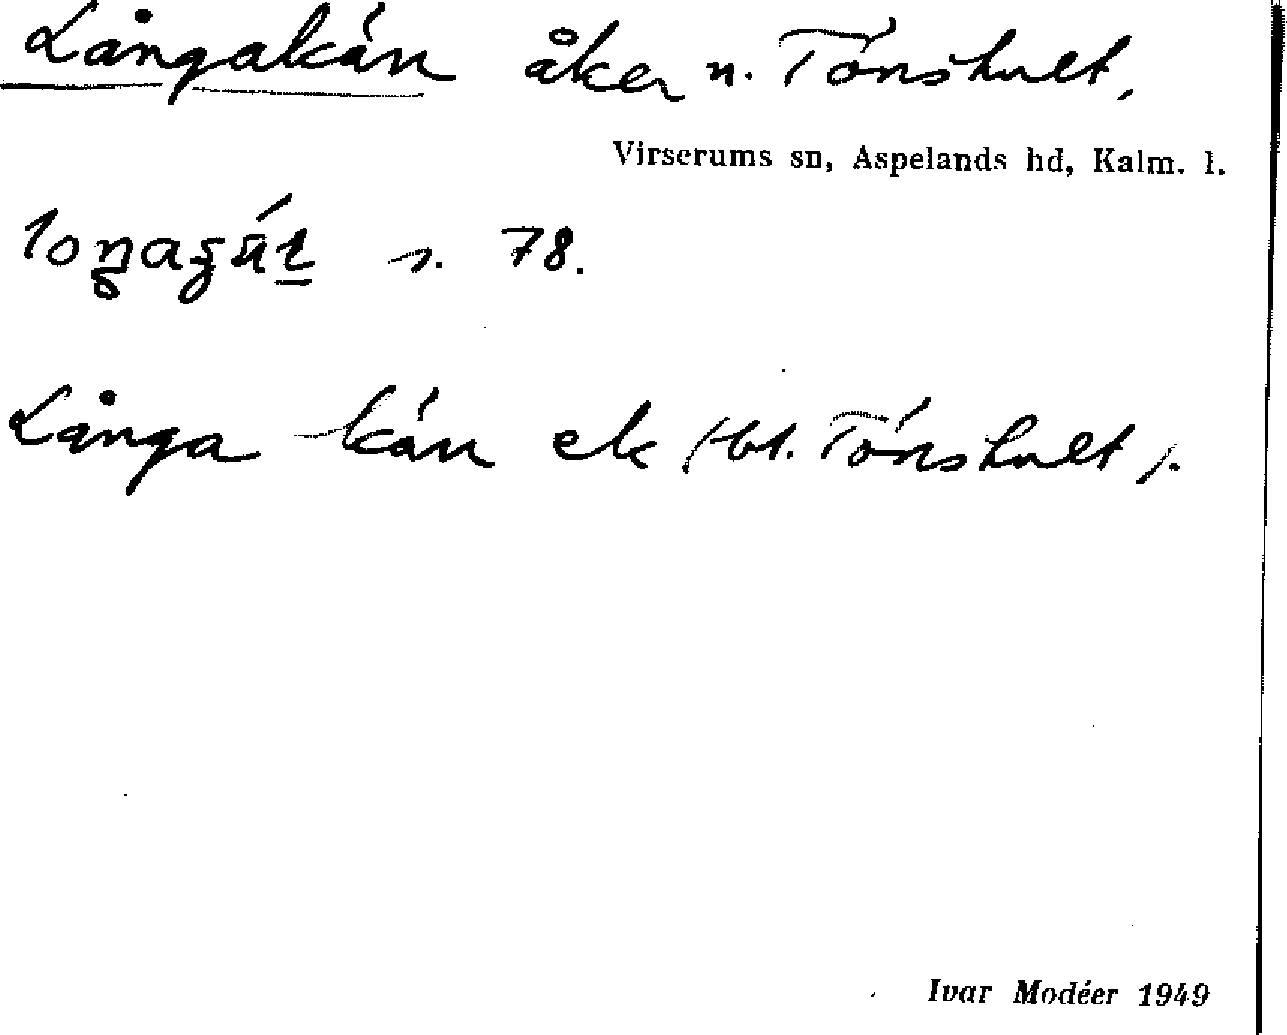 Långakán åker n. Tónshult,
Virserums sn, Aspelands hd, Kalm. l.
s. 78.
Långa kán ek (bl. Tónshult).
Ivar Modéer 1949